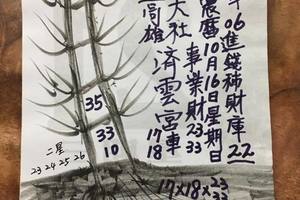 06進錢補財庫22
農曆10月16日星期日
大社 事業財23.33
高雄 濟雲宮車17 18
35
33
10
二星
23 24 25 26
17×18×23 33